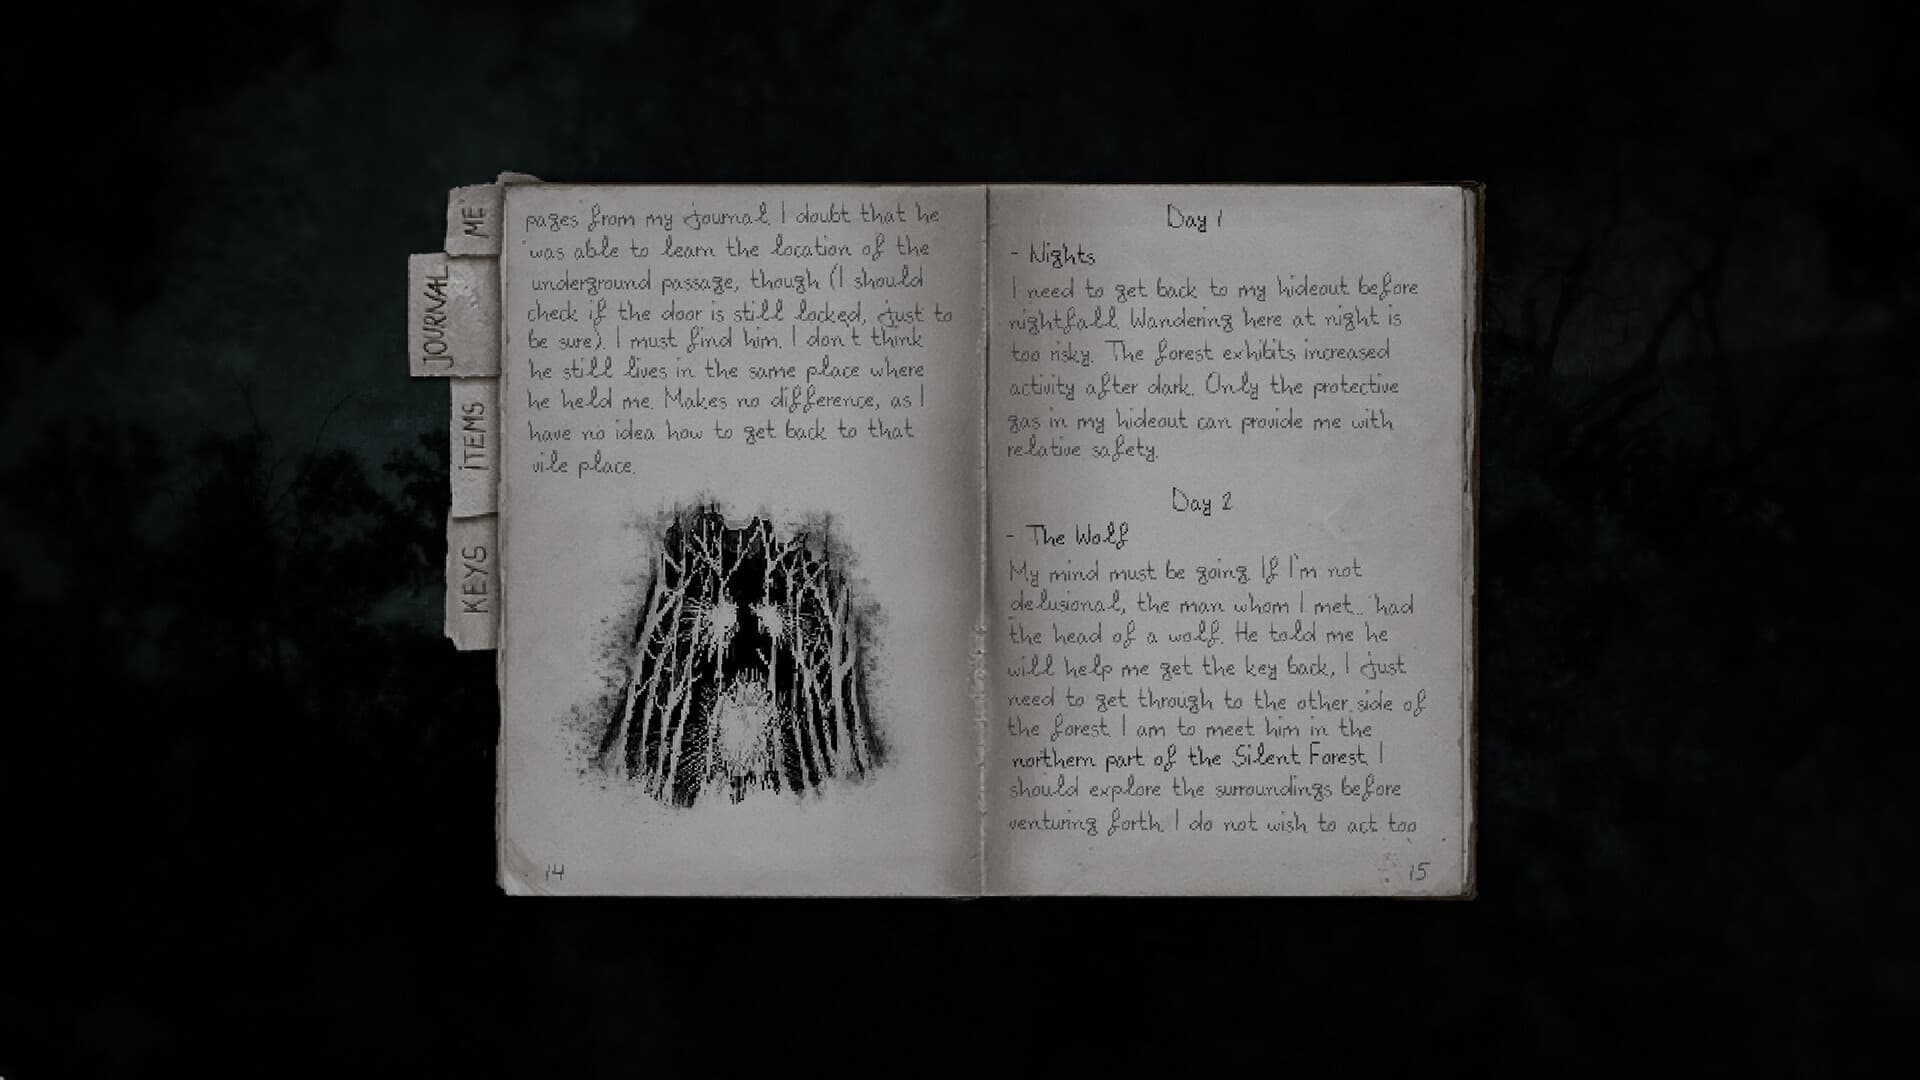 ME
JOURNAL
ITEMS
KEYS
pages from my journal. I doubt that he
was able to learn the location of the
underground passage, though (I should
check if the door is still locked, just to
be sure). I must find him. I don't think
he still lives in the same place where
he held me. Makes no difference, as I
have no idea how to get back to that
vile place.
14
Day 1
- Nights
I need to get back to my hideout before
nightfall. Wandering here at night is
too risky. The forest exhibits increased
activity after dark. Only the protective
gas in my hideout can provide me with
relative safety.
Day 2
- The Wolf
My mind must be going. If I'm not
delusional, the man whom I met... had
the head of a wolf. He told me he
will help me get the key back, I just
need to get through to the other side of
the forest. I am to meet him in the
northern part of the Silent Forest. I
should explore the surroundings before
venturing forth. I do not wish to act too
15